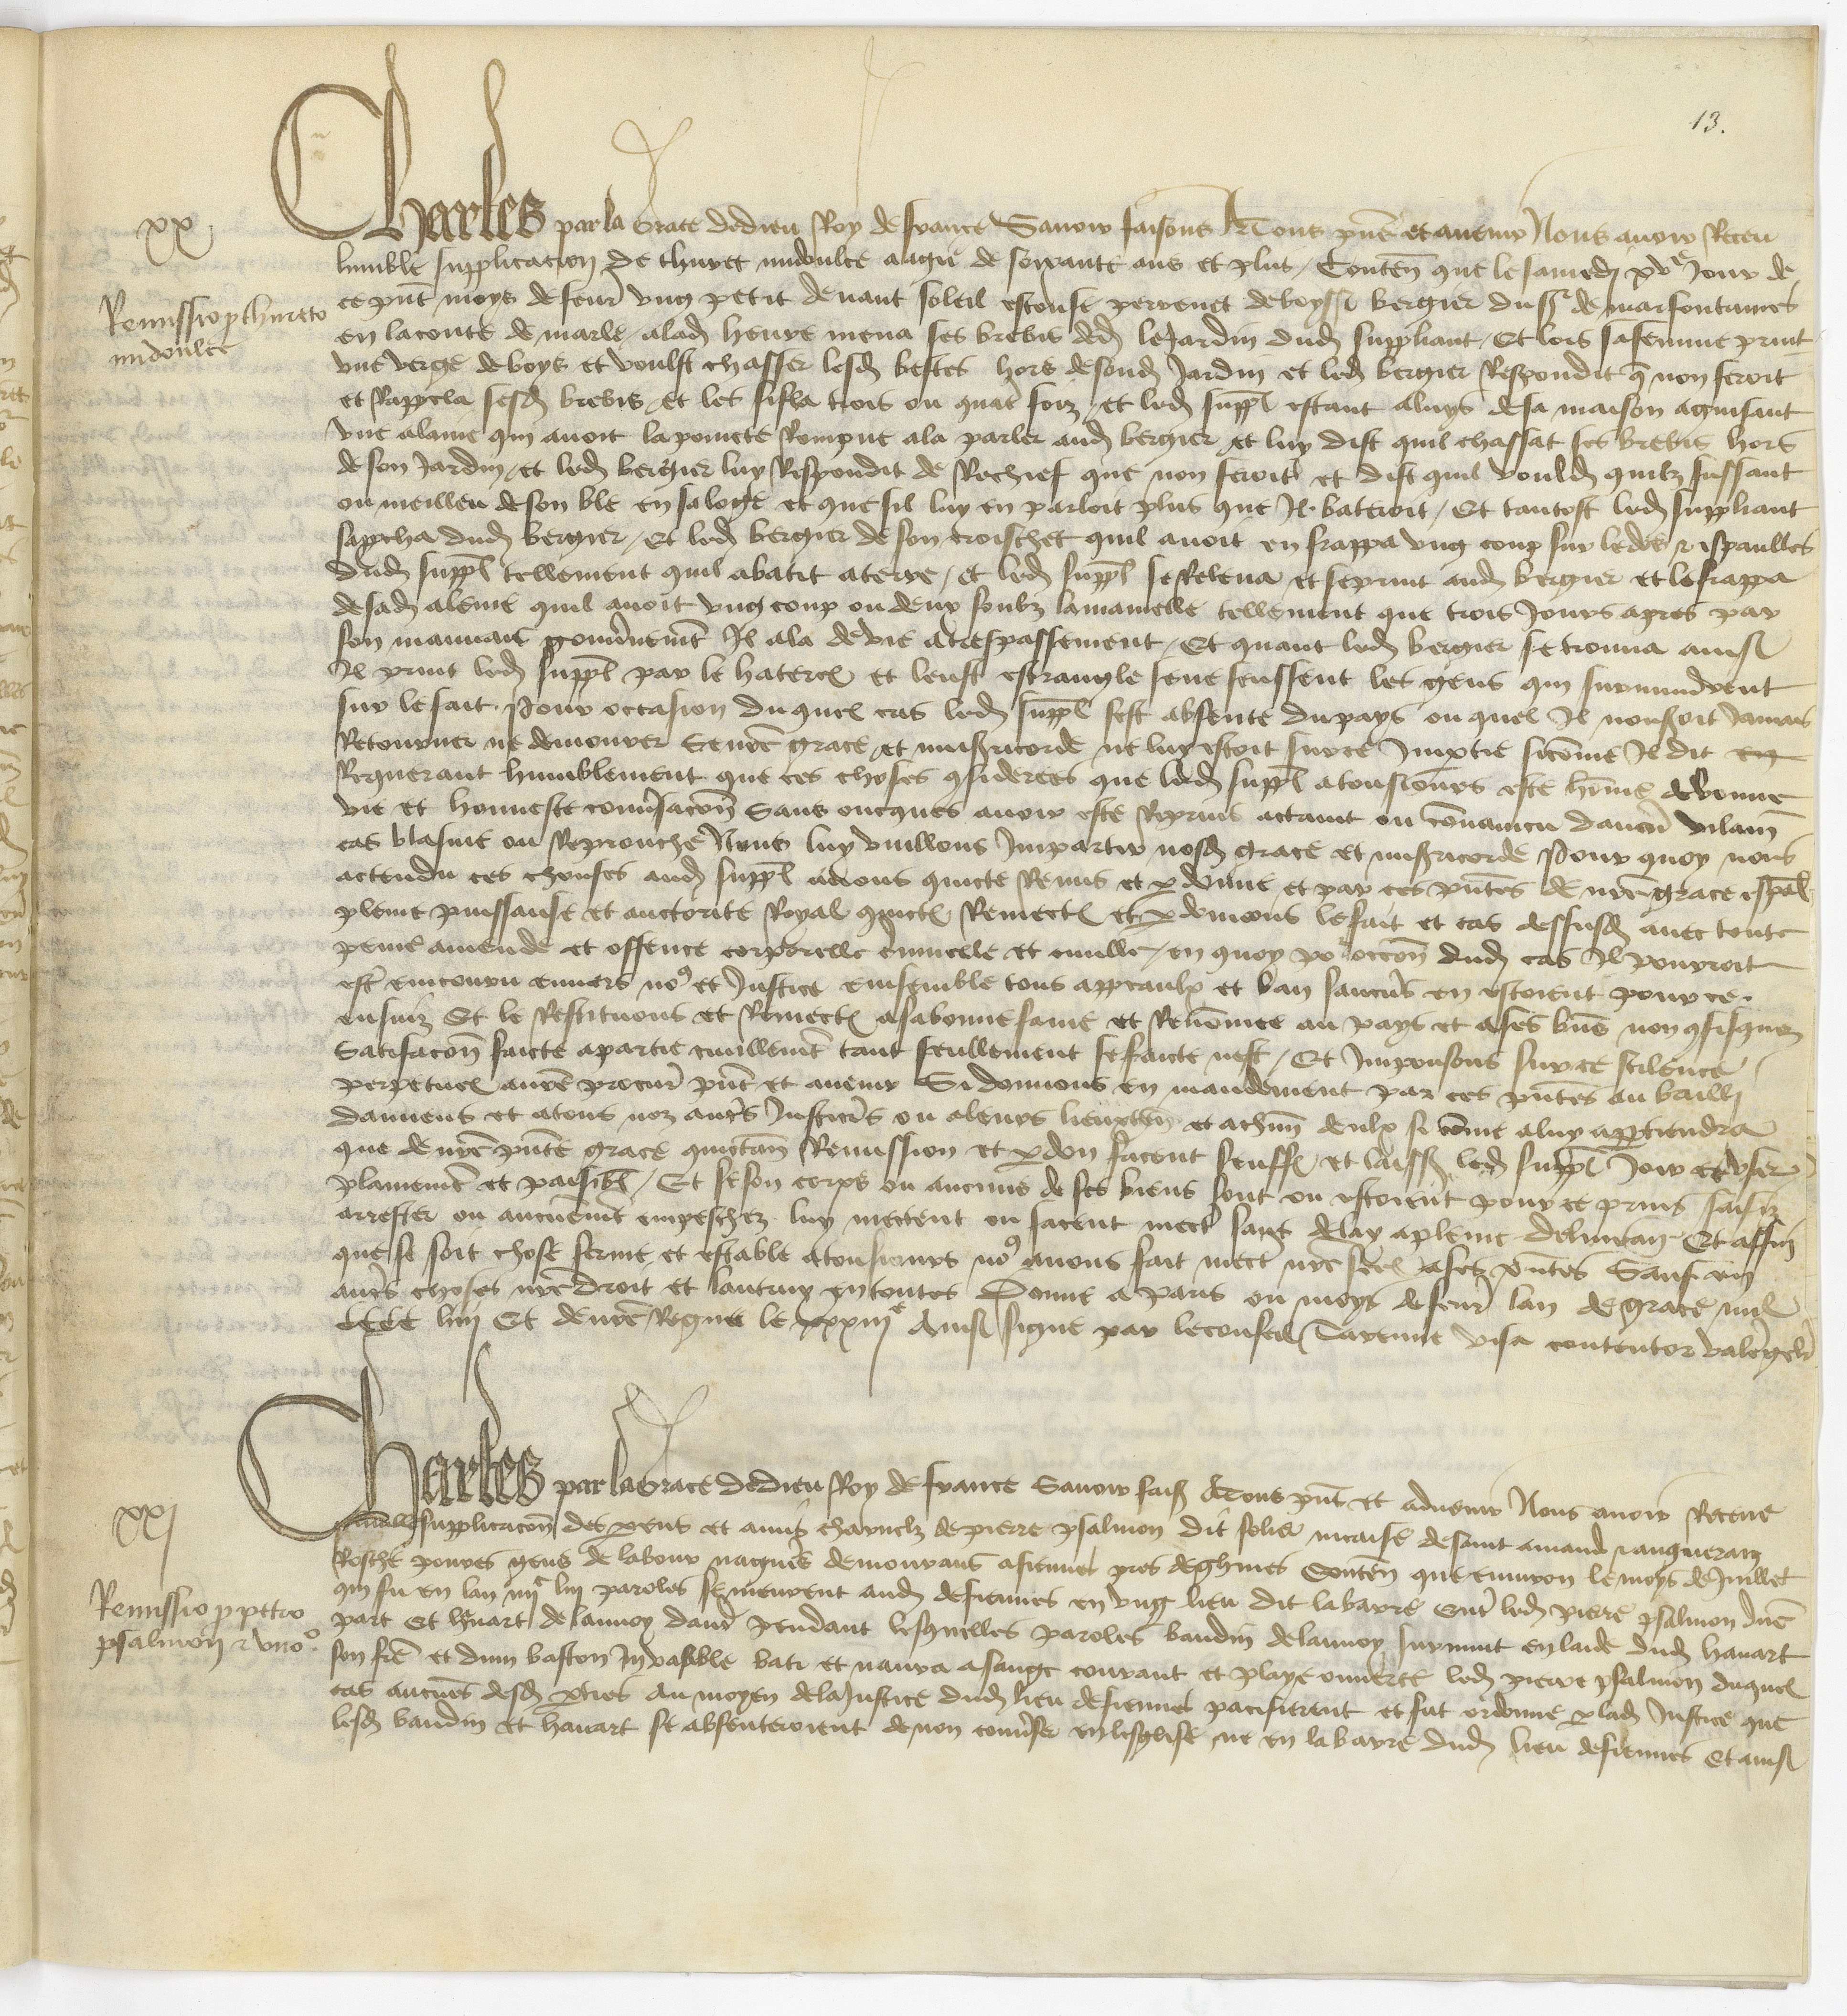 13.
xx
Charles par la grace de dieu Roy de france Savoir faisons A Tous pñs et avenir Nous avoir Receu
lumble supplicacion de thuret midoulce aagie de soixante ans et plus / Conteñ que le samedi xve Jour de
Remissio p thureto
midoulce
ce pñt moys de feur ung petit devant soleil esconse pervenet de boyss bergier dud de marfontaines
en laconte de marle / alad heure mena ses brebis ded le Jardin dud suppliant / Et lors safemme print
une verge de boys et voulst chasser lesd bestes hors de sond Jardin et led bergier Respondit q non feroit
et Rappela sesd brebis / et les sifla trois ou quatre foiz / et led suppl estant aluys de sa maison aguisant
une alame qui avoit la poincte Rompue ala parler aud bergier et luy dist quil chassat ses brebis hors
de son Jardin / et led bergier luy Respondit de Rechief que non feroit et dist quil vould quilz fussant
ou meilleu de son ble en saloge et que sil luy en parloit plus que Il batroit / Et tantost led suppliant
sapcha dud bergier / Et led bergier de son croischet quil avoit en frappa ung coup sur ledos & espaulles
dud suppl tellement quil abatit aterre / et led suppl se Releva et se print aud bergier et le frappa
de sad aleme quil avoit ung coup ou deux soubz la mamelle tellement que trois Jours apres par
son mauvais gouvnemt Il ala de vie atrespassement / Et quant led bergier se trouva ainsi
Il print led suppl par le haterel et leust estrangle sene feussent les gens qui survindrent
sur le fait / Pour occasion duquel cas led suppl sest absente du pays ou quel Il noseroit Jamais
Retourner ne demourer Se nre grace et misericorde ne luy estoit sur ce Impartie sicomme Il dit en
Requerant humblement que ces choses qsiderees que led suppl atousiours este hōme de bonne
vie et honneste convsacoñ Sans oncques avoir este Reprins actaint ou convaincu daucū vilain
cas blasme ou Reprouche Nous luy vuillons Impartir nosd grace et misericorde Pour quoy nous
actendu ces chouses aud suppl avons quicte Remis et pdonne et par ces pñtes de nre grace espal
pleine puissanse et auctorite Royal quictos Remectos et pdonnons le fait et cas dessusd avec toute
peine amende et offence corporelle criminelle et civille / en quoy po loccoñ dud cas Il pourroit
est encouru envers no9 et Justice ensemble tous appeaulx et ban saucus en estoient pour ce
ensuiz Et le Restituons et Remectos asabonne fame et Renomee au pays et ases biens non qfisquez
Satisfacoñ faicte apartie civillemt tant seullement se faicte nest / Et Imposons sur ce scilence
perpetuel anre procur pñt et avenir Si donnons en mandement par ces pñtes au bailli
damiens et atous noz autrs Justicirs ou aleurs lieuxteñ et achūn deulx si come aluy apptiendra
que de nre pñte grace quictan Remission et pdon facent seuffr et laiss led suppl Joir et user
plainemt et paisibl / Et se son corps ou aucuns de ses biens sont ou estoient pour ce prins saisiz
arrester ou aucunemt empeschez luy mectent ou facent mectr sans delay apleine delivran Et affin
que se soit chose ferme et estable atousiours no9 avons fait mectr nre seel ases pñtes Sauf en
autrs choses nre droit et lautruy entoutes Donne a paris ou moys de feur lan de grace mil
CCCC liiij Et de nre Regne le xxxiije Ainsi signe par leconseil Tarenne visa contentor valengelir
xxj
Charles par la Grace de dieu Roy de france Savoir fais A Tous pñs et advenir Nous avoir Receue
lumble supplicacoñ des pens et amis charnelz de pierre psalmon dit solier nicaise de saint amand & anguerain
Remissio p petro
psalmon & uno.
Rosche povres gens de labour nagueres demourans afiennes pres de ghines Conteñ que environ le moys de Juillet
qui fu en lan iiijc liij paroles se meurent aud de fiennes en ung lieu dit la barre Entr led pierre psalmon dune
part Et havart de lannoy dautr pendant lesquelles paroles baudin de lannoy survint en laide dud havart
son frē et dun baston Invasible bati et navra a sangc courant et playe ouverte led pierre psalmon duquel
cas aucunes desd pties Au moyen de la Justice dud lieu de fiennes pacifierent et fut ordonne p lad Justice que
lesd baudin et havart se absenteroient de non convser en lesglise ne en la barre dud lieu de fiennes Et ainsi